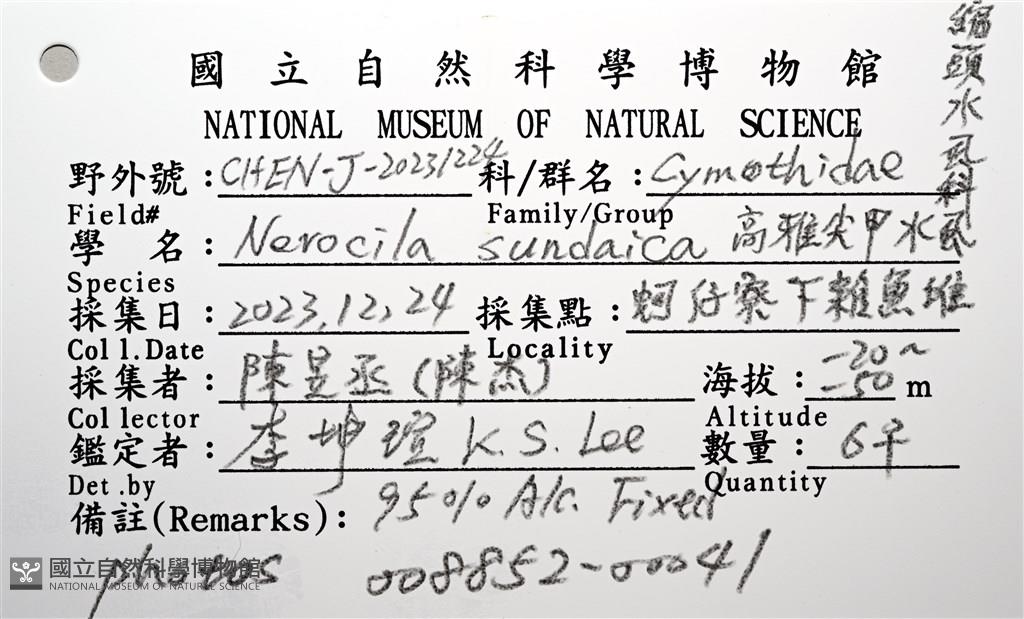 國立自然科學博物館
NATIONAL MUSEUM OF NATURAL SCIENCE
縮頭水虱科
野外號：CHEN-J-20231224 科/群名：Cymothidae
Field# Family/Group
學 名：Nerocila sundaica 高雅尖甲水虱
Species
採集日：2023,12,24 採集點：蚵仔寮下雜魚堆
Coll.Date Locality
採集者：陳昱丞(陳杰) 海拔：-20~-50 m
Collector Altitude
鑑定者：李坤瑄 K.S. Lee 數量：6♀
Det.by Quantity
備註(Remarks)：95% Alc. Fixed
photos 008852-00041
國立自然科學博物館
NATIONAL MUSEUM OF NATURAL SCIENCE